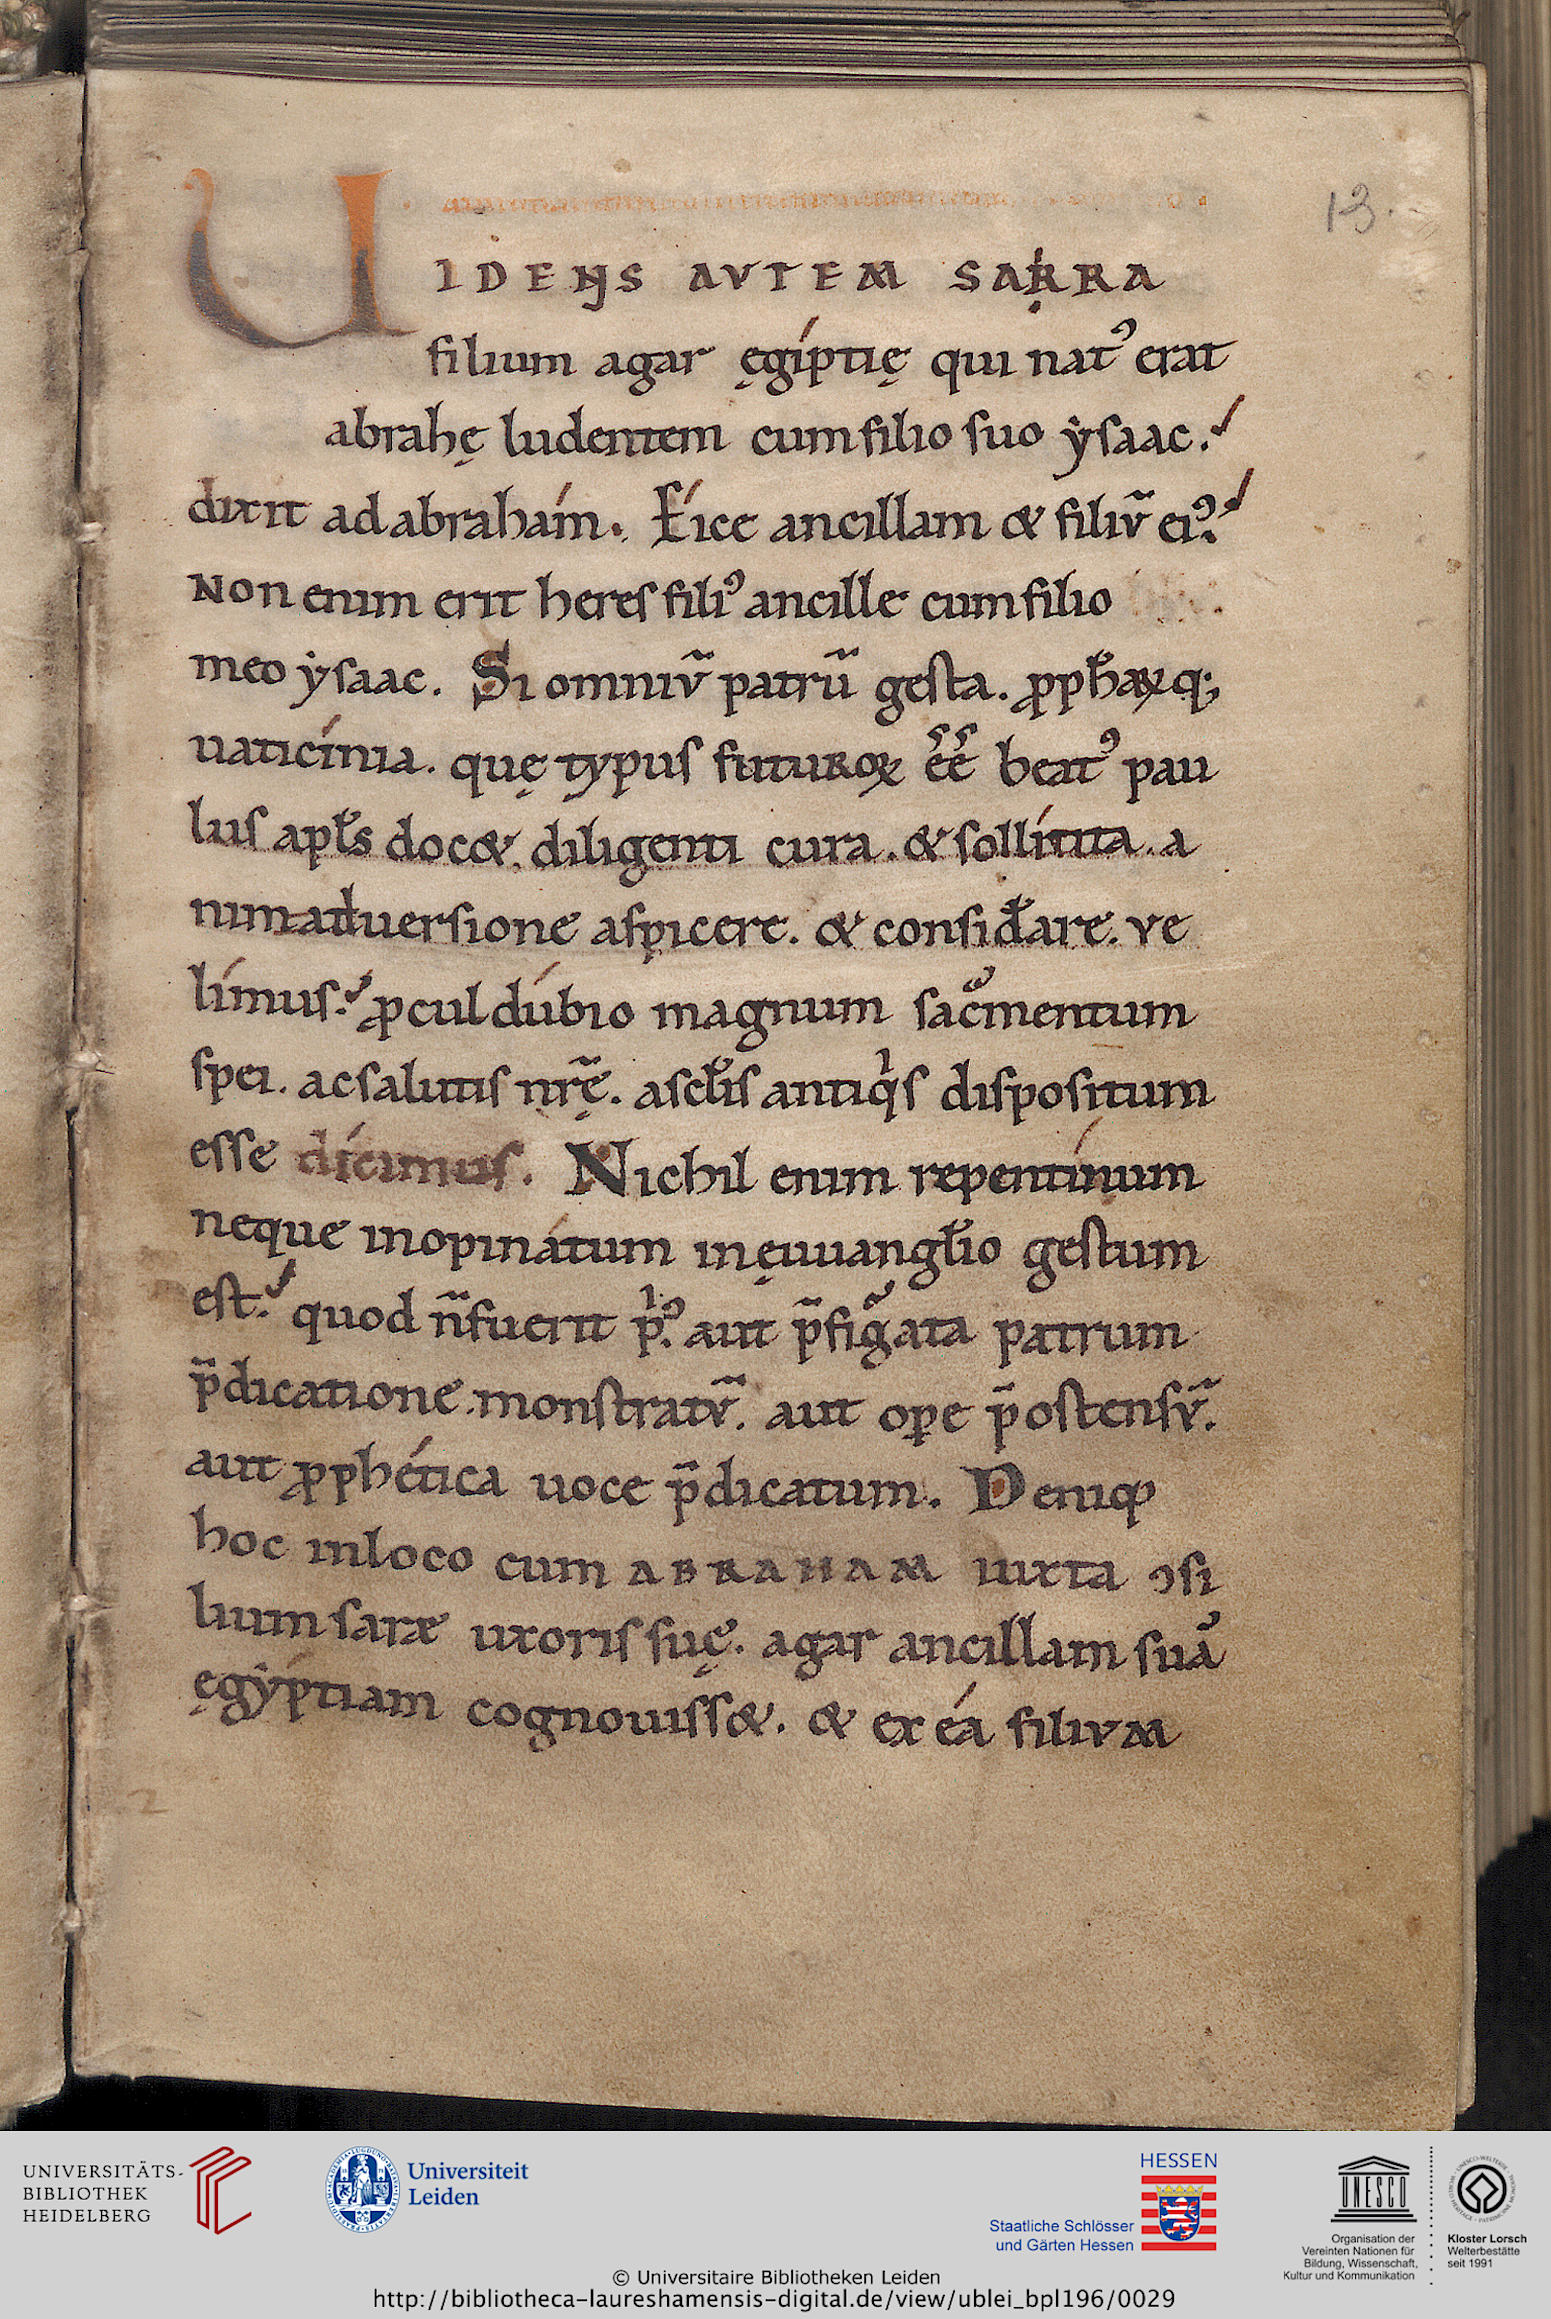 13.
UIDENS AVTEM SARRA
filium agar ęgíptię qui natꝰ erat
abrahę ludentem cum filio suo ẏsaac.
dixit ad abrahám. Eíce ancillam & filiū eiꝰ.
Non enim erit heres filiꝰ ancille cum filio
meo ẏsaac. Si omniū patrū gesta. ꝓpħaꝝq;
uaticínia. quę typus futuroꝝ ēē beatꝰ pau
lus apƚs doc&. diligenti cura. & sollícita. a
nimaduersione aspicere. & considare. ve
límus. ꝓcul dúbio magnum sacmentum
spei. ac salutis nrę̄. a scƚis antiqis dispositum
esse dícimus. Nichil enim repentínum
neque inopinátum in ęuuangƚio gestum
est. quod n̄ fuerit pⁱꝰ. aut p̄figata patrum
p̄dicatione. monstratū. aut oꝑe p̄ostensū.
aut ꝓphética uoce p̄dicatum. Deniq
hoc in loco cum ABRAHAM iuxta ꝯsi
lium saræ uxoris suę. agar ancillam suā
ęgẏptiam cognouiss&. & ex éa filivm
2
UNIVERSITÄTS-
BIBLIOTHEK
HEIDELBERG
Universiteit
Leiden
HESSEN
Staatliche Schlösser
und Gärten Hessen
UNESCO
Organisation der
Vereinten Nationen für
Bildung, Wissenschaft,
Kultur und Kommunikation
Kloster Lorsch
Welterbestätte
seit 1991
© Universitaire Bibliotheken Leiden
http://bibliotheca-laureshamensis-digital.de/view/ublei_bpl196/0029